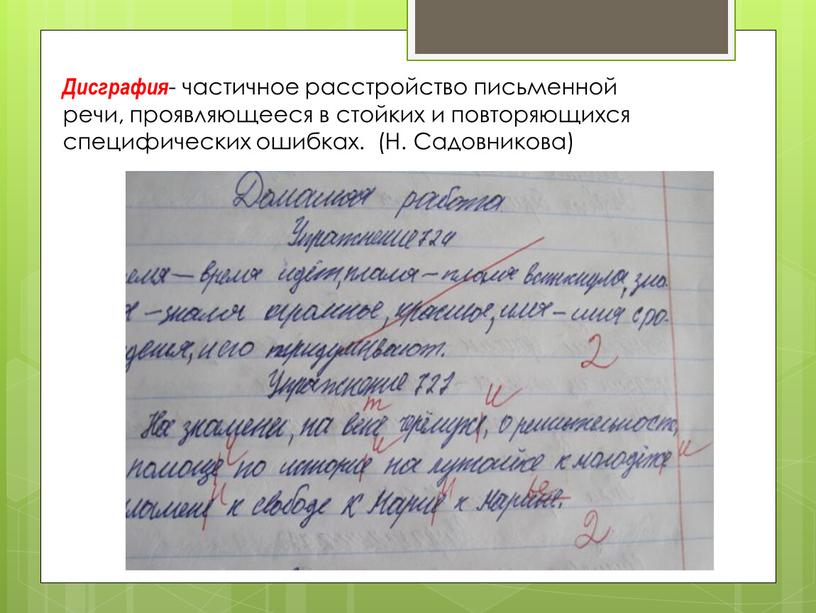 Дисграфия- частичное расстройство письменной
речи, проявляющееся в стойких и повторяющихся
специфических ошибках. (Н. Садовникова)
Домашняя работа
Упражнение 724
емя — время идёт, пламя — пламя вспыхнуло, зна-
я — знамя огромное, красное, имя — имя с ро-
дения, и его придумывают.
2
Упражнение 727
На знамени, на вене черёмухе, о решительности,
помоще по истории на лужайке к молодёже
пламене к свободе к Марие к Марине.
2